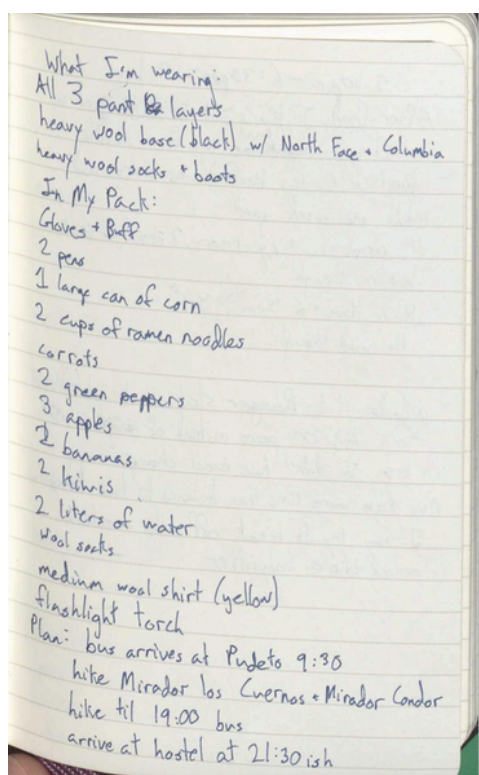 What I'm wearing:
All 3 pant layers
heavy wool base (black) w/ North Face + Columbia
heavy wool socks + boots
In My Pack:
Gloves + Buff
2 pens
1 large can of corn
2 cups of ramen noodles
carrots
2 green peppers
3 apples
2 bananas
2 kiwis
2 liters of water
wool socks
medium wool shirt (yellow)
flashlight torch
Plan: bus arrives at Pudeto 9:30
hike Mirador los Cuernos + Mirador Condor
hike til 19:00 bus
arrive at hostel at 21:30 ish